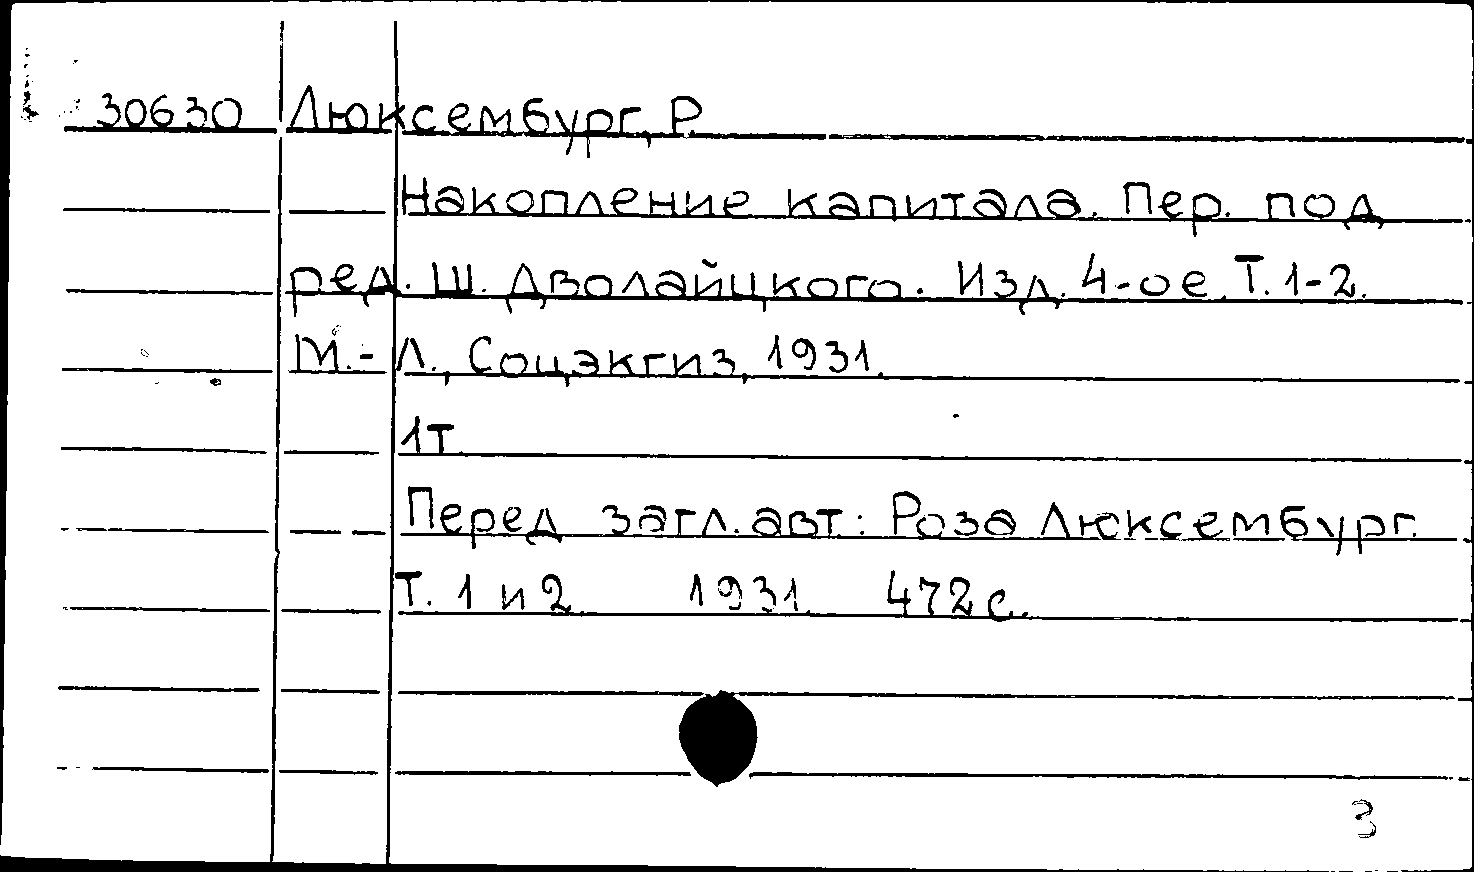 30630 Люксембург, Р.
Накопление капитала. Пер. под
ред. Ш. Дволайцкого. Изд. 4-ое. Т. 1-2.
М.-Л., Соцэкгиз, 1931.
1т.
Перед загл. авт.: Роза Люксембург.
Т. 1 и 2. 1931. 472 с.
3